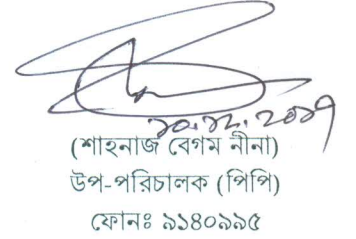 ১০.১২.২০১৭
(শাহনাজ বেগম নীনা)
উপ-পরিচালক (পিপি)
ফোনঃ ৯১৪০৯৯৫